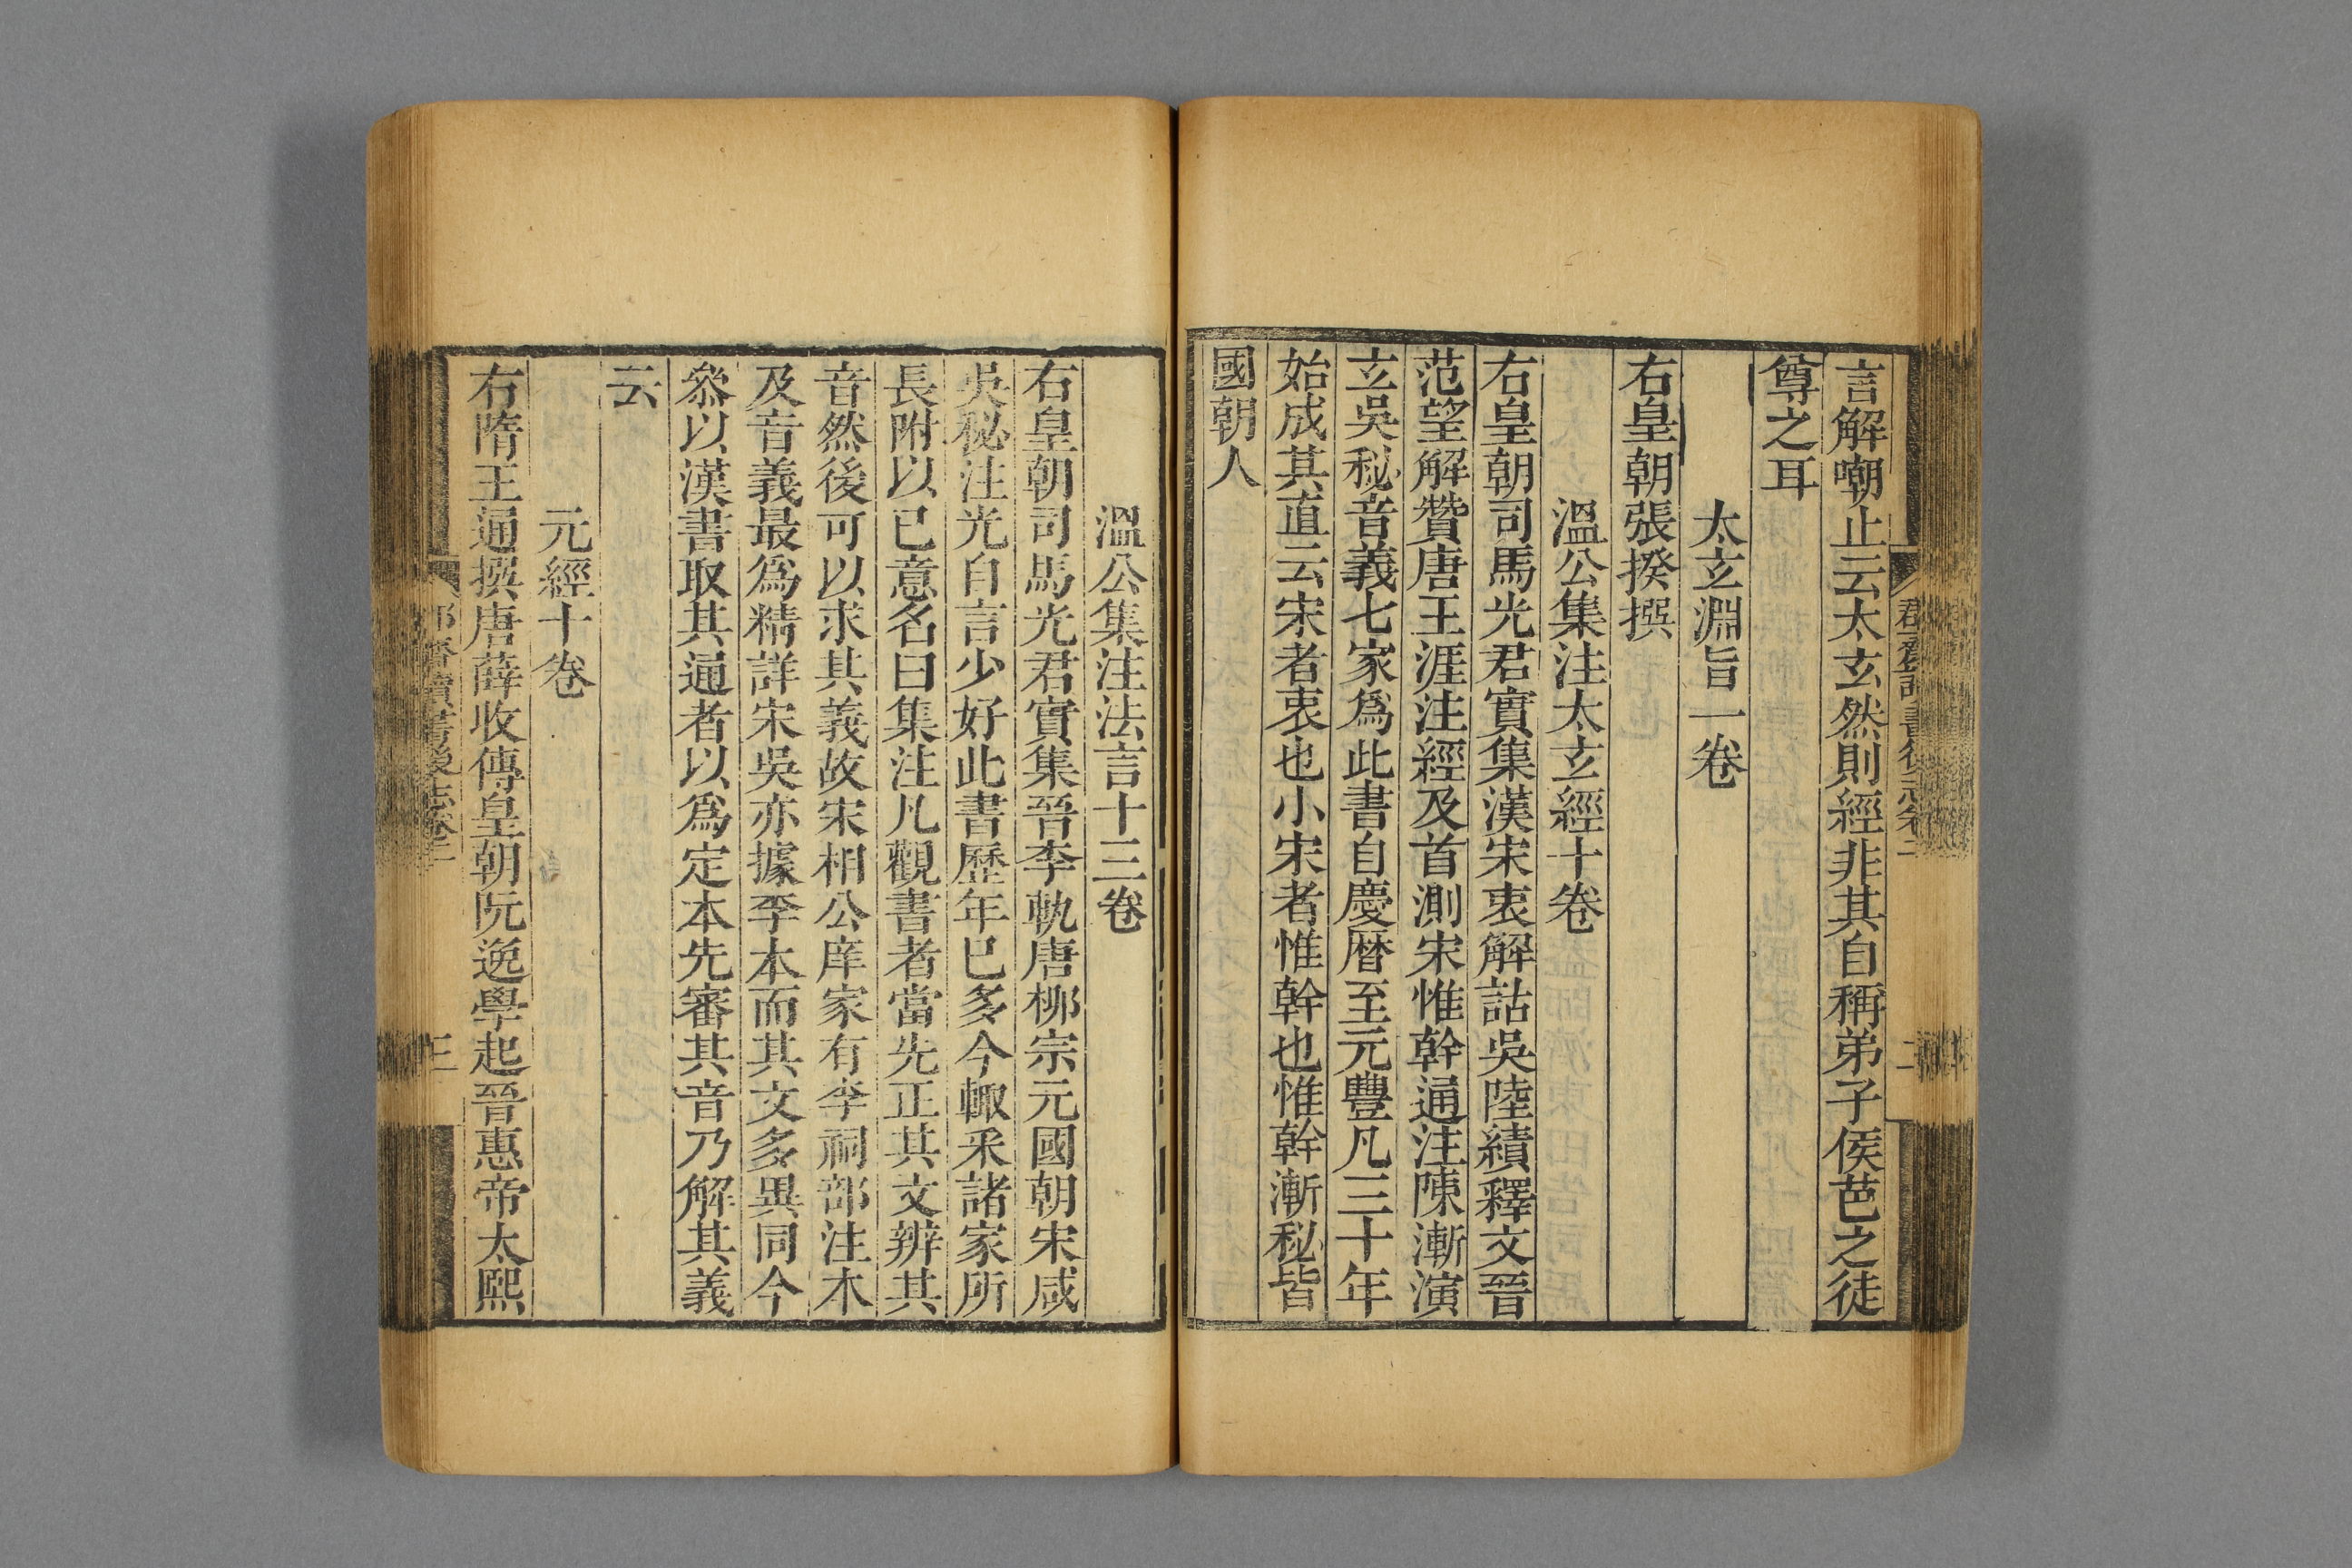 言解嘲止云太玄然則經非其自稱弟子侯芭之徒
尊之耳
太玄淵旨一卷
右皇朝張揆撰
溫公集注太玄經十卷
右皇朝司馬光君實集漢宋衷解詁吳陸績釋文晉
范望解贊唐王涯注經及首測宋惟幹通注陳漸演
玄吳秘音義七家爲此書自慶曆至元豐凡三十年
始成其直云宋者衷也小宋者惟幹也惟幹漸秘皆
國朝人
溫公集注法言十三卷
右皇朝司馬光君實集晉李軌唐柳宗元國朝宋咸
吳秘注光自言少好此書歷年已多今輙采諸家所
長附以已意名曰集注凡觀書者當先正其文辨其
音然後可以求其義故宋相公庠家有李祠部注本
及音義最爲精詳宋吳亦據李本而其文多異同今
叅以漢書取其通者以爲定本先審其音乃解其義
云
元經十卷
右隋王通撰唐薛收傳皇朝阮逸學起晉惠帝太熙
郡齋讀書後志卷二
三